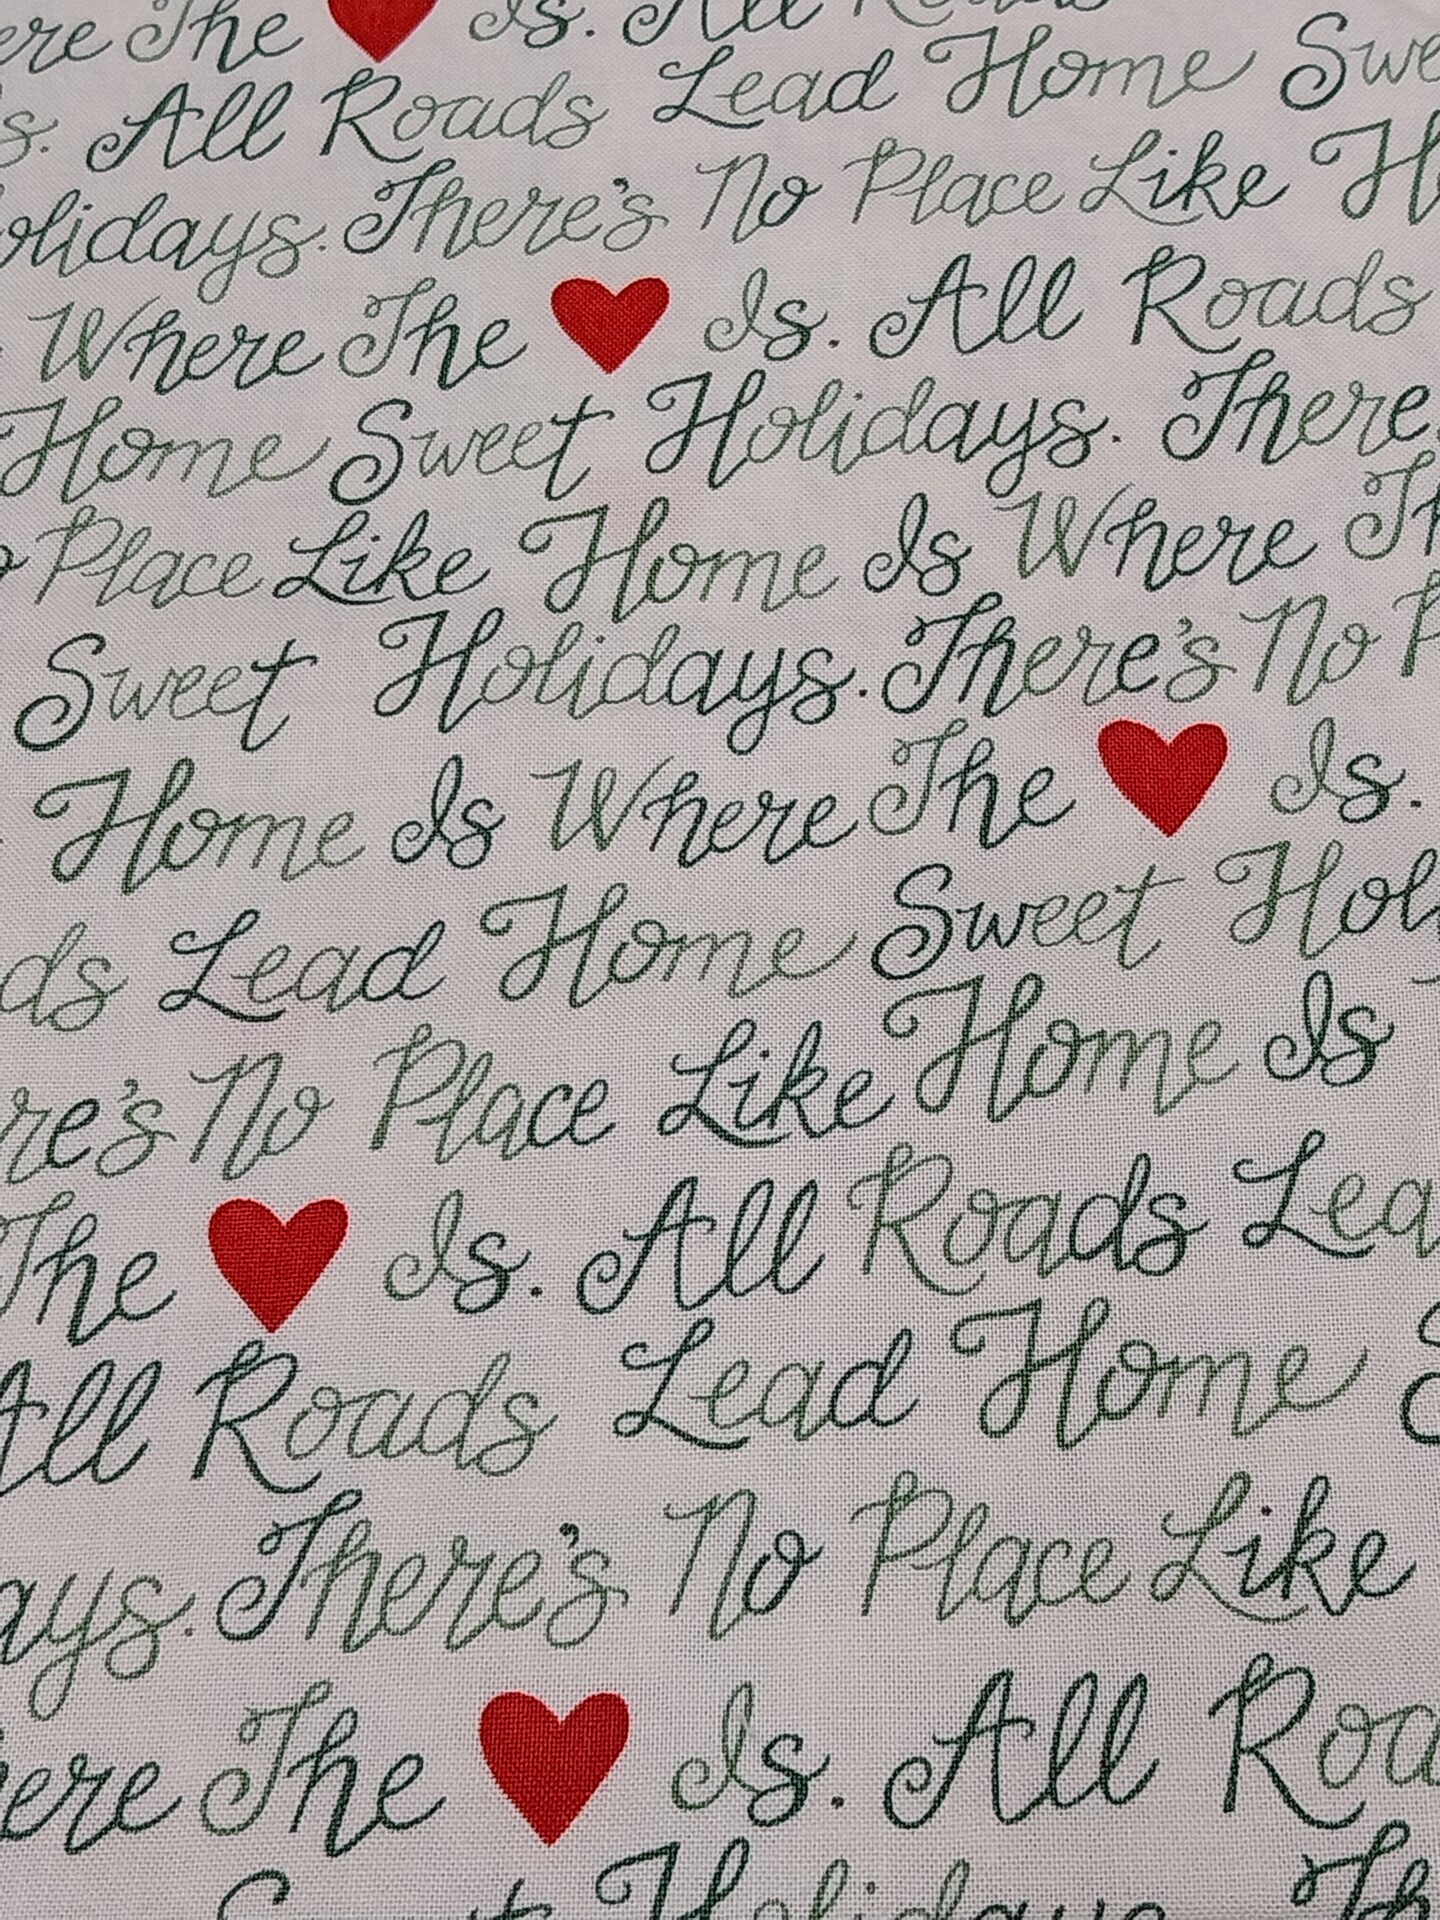 The Is. All
All Roads Lead Home
There's No Place Like
Where The Is. All Roads
Home Sweet Holidays. There
Place Like Home Is Where
Sweet Holidays. There's No
Home Is Where The Is.
Lead Home Sweet Hol
No Place Like Home Is
The Is. All Roads Lea
All Roads Lead Home
ays. There's No Place Like
ere The Is. All Roa
Holidays